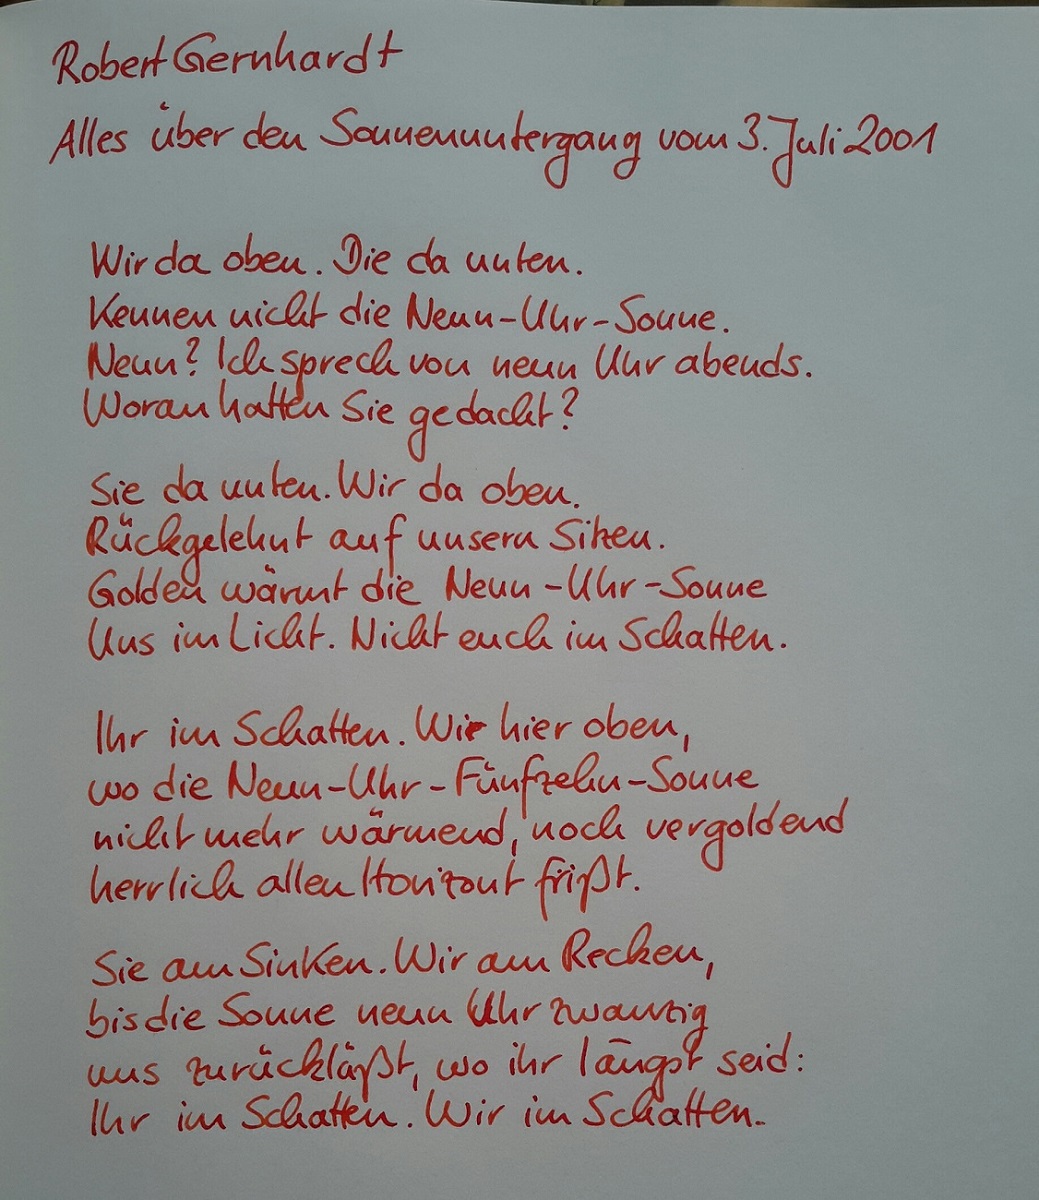 Robert Gernhardt
Alles über den Sonnenuntergang vom 3. Juli 2001
Wir da oben. Die da unten.
Kennen nicht die Neun-Uhr-Sonne.
Neun? Ich sprech von neun Uhr abends.
Woran hatten Sie gedacht?
Sie da unten. Wir da oben.
Rückgelehnt auf unsern Sitzen.
Golden wärmt die Neun-Uhr-Sonne
Uns im Licht. Nicht euch im Schatten.
Ihr im Schatten. Wir hier oben,
wo die Neun-Uhr-Fünfzehn-Sonne
nicht mehr wärmend, noch vergoldend
herrlich allen Horizont frißt.
Sie am Sinken. Wir am Recken,
bis die Sonne neun Uhr zwanzig
uns zurückläßt, wo ihr längst seid:
Ihr im Schatten. Wir im Schatten.